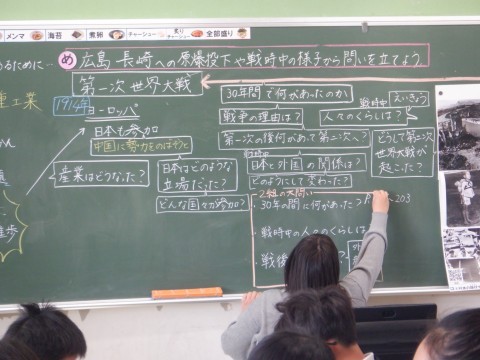 メンマ 海苔 煮卵 チャーシュー 炙りチャーシュー 全部盛り
るために…
め 広島、長崎への原爆投下や戦時中の様子から問いを立てよう
第一次世界大戦
重工業
1914年
ヨーロッパ
日本も参加
中国に勢力をのばそうと
産業はどうなった?
日本はどのような立場だった?
どんな国々が参加?
30年間で何があったのか
戦争の理由は?
戦時中
えいきょう
人々のくらしは?
第一次の後何があって第二次へ?
どうして第二次
世界大戦が
起こった?
戦時中
日本と外国の関係は?
どのようにして変わった?
2組の大問い
・30年の間に何があった
203
・戦時中の人々のくらしは
・戦後
外
歩